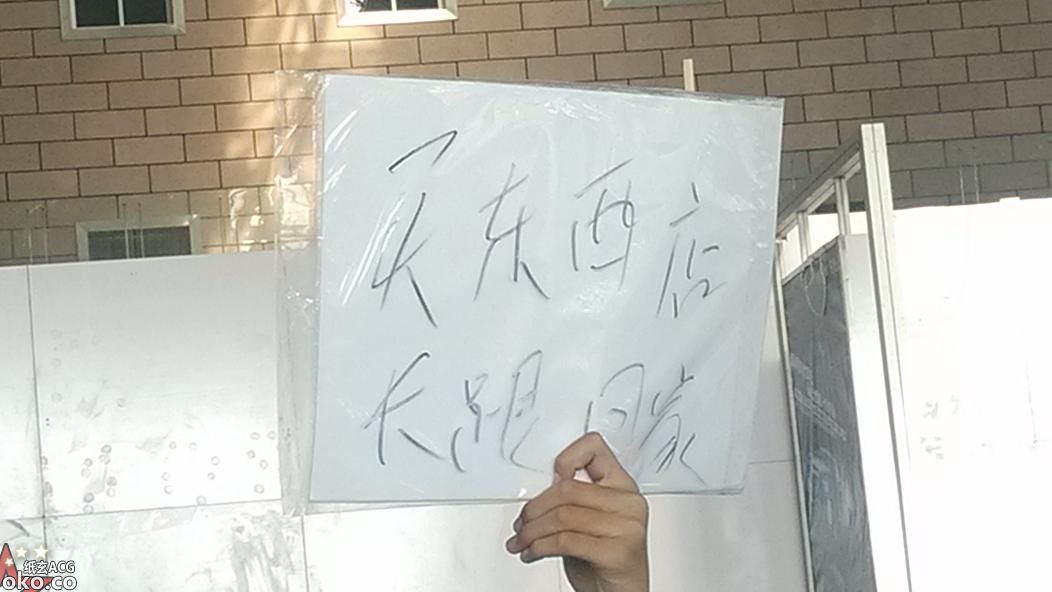 买东西店
长跟回家
纸玄ACG
oko.co